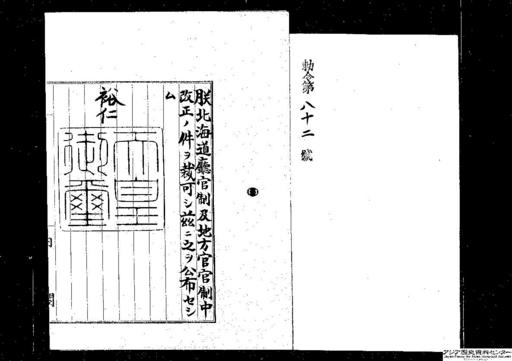 勅令第八十二號
朕北海道廳官制及地方官官制中
改正ノ件ヲ裁可シ茲ニ之ヲ公布セシ
ム
裕仁
天皇
御璽
内閣
アジア歴史資料センター